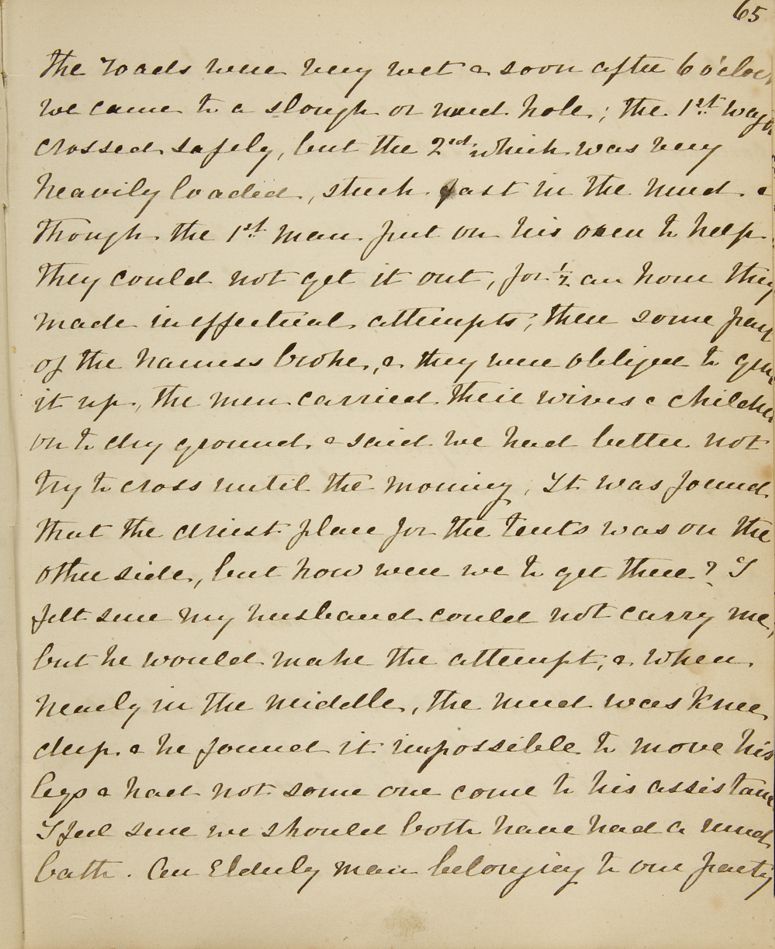 65
The roads were very wet & soon after 6 o'clock
we came to a slough or mud hole; the 1st wagon
crossed safely, but the 2nd which was very
heavily loaded, stuck fast in the mud. &
though the 1st man put on his oxen to help
they could not get it out, for 1/2 an hour they
made ineffectual attempts; then some part
of the harness broke, & they were obliged to give
it up, the men carried their wives & children
on to dry ground & said we had better not
try to cross until the morning. It was found
that the driest place for the tents was on the
other side, but how were we to get there? I
felt sure my husband could not carry me,
but he would make the attempt, & when
nearly in the middle, the mud was knee
deep & he found it impossible to move his
legs & had not some one come to his assistance
I feel sure we should both have had a mud
bath. An Elderly man belonging to our party